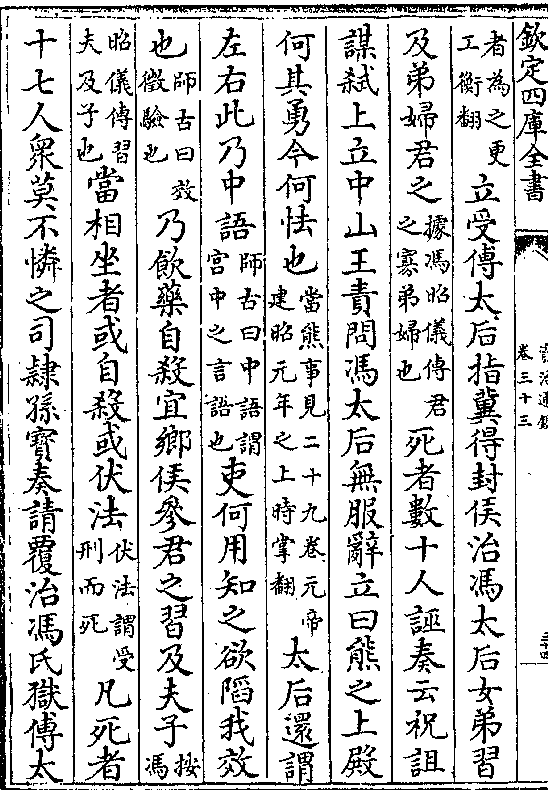 欽定四庫全書
卷三十三
者為之更工衡翻立受傅太后指冀得封侯治馮太后女弟習
及弟婦君之據馮昭儀傳君之寡弟婦也死者數十人誣奏云祝詛
謀弑上立中山王責問馮太后無服辭立曰熊之上殿
何其勇今何怯也當熊事見二十九卷元帝建昭元年之上時掌翻太后還謂
左右此乃中語師古曰中語謂宮中之言語也吏何用知之欲陷我效
也師古曰效徵驗也乃飲藥自殺宜鄉侯參君之習及夫子按馮
昭儀傳習夫及子也當相坐者或自殺或伏法伏法謂受刑而死凡死者
十七人衆莫不憐之司隸孫寶奏請覆治馮氏獄傅太